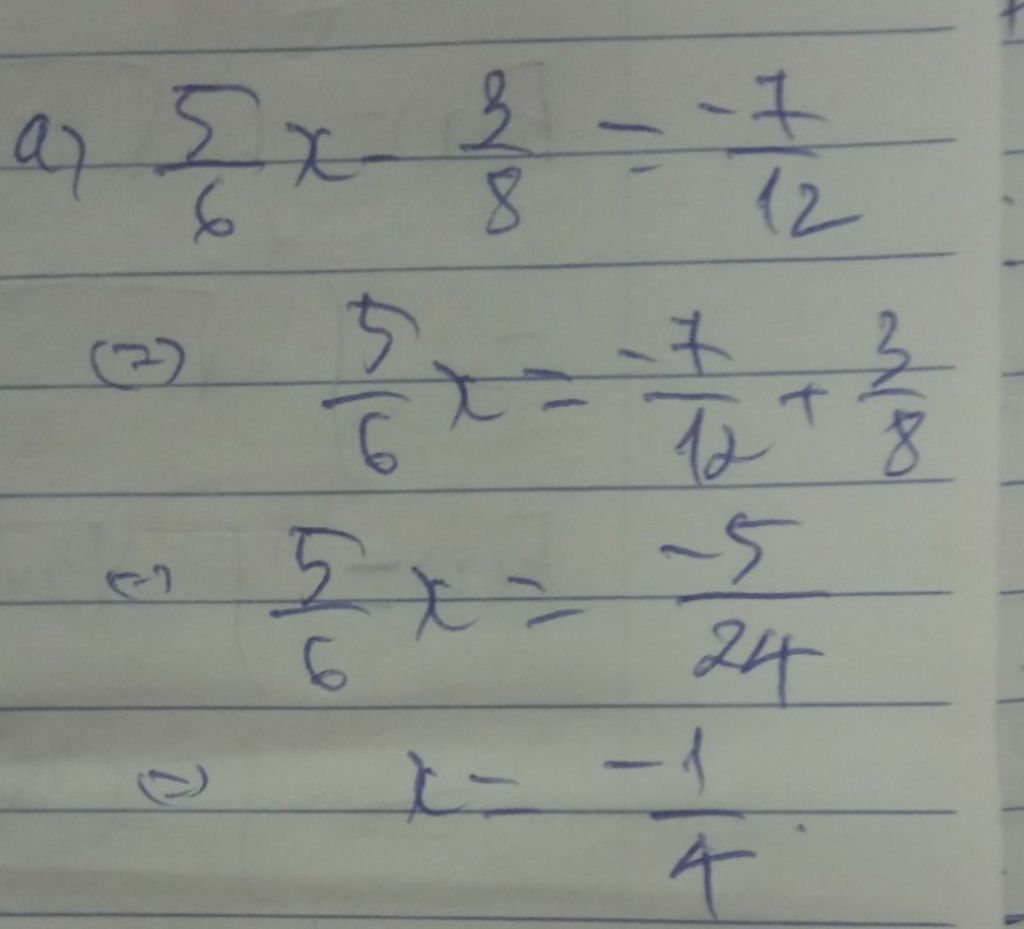 a) 5/6 x - 3/8 = -7/12
(=) 5/6 x = -7/12 + 3/8
(=) 5/6 x = -5/24
(=) x = -1/4.